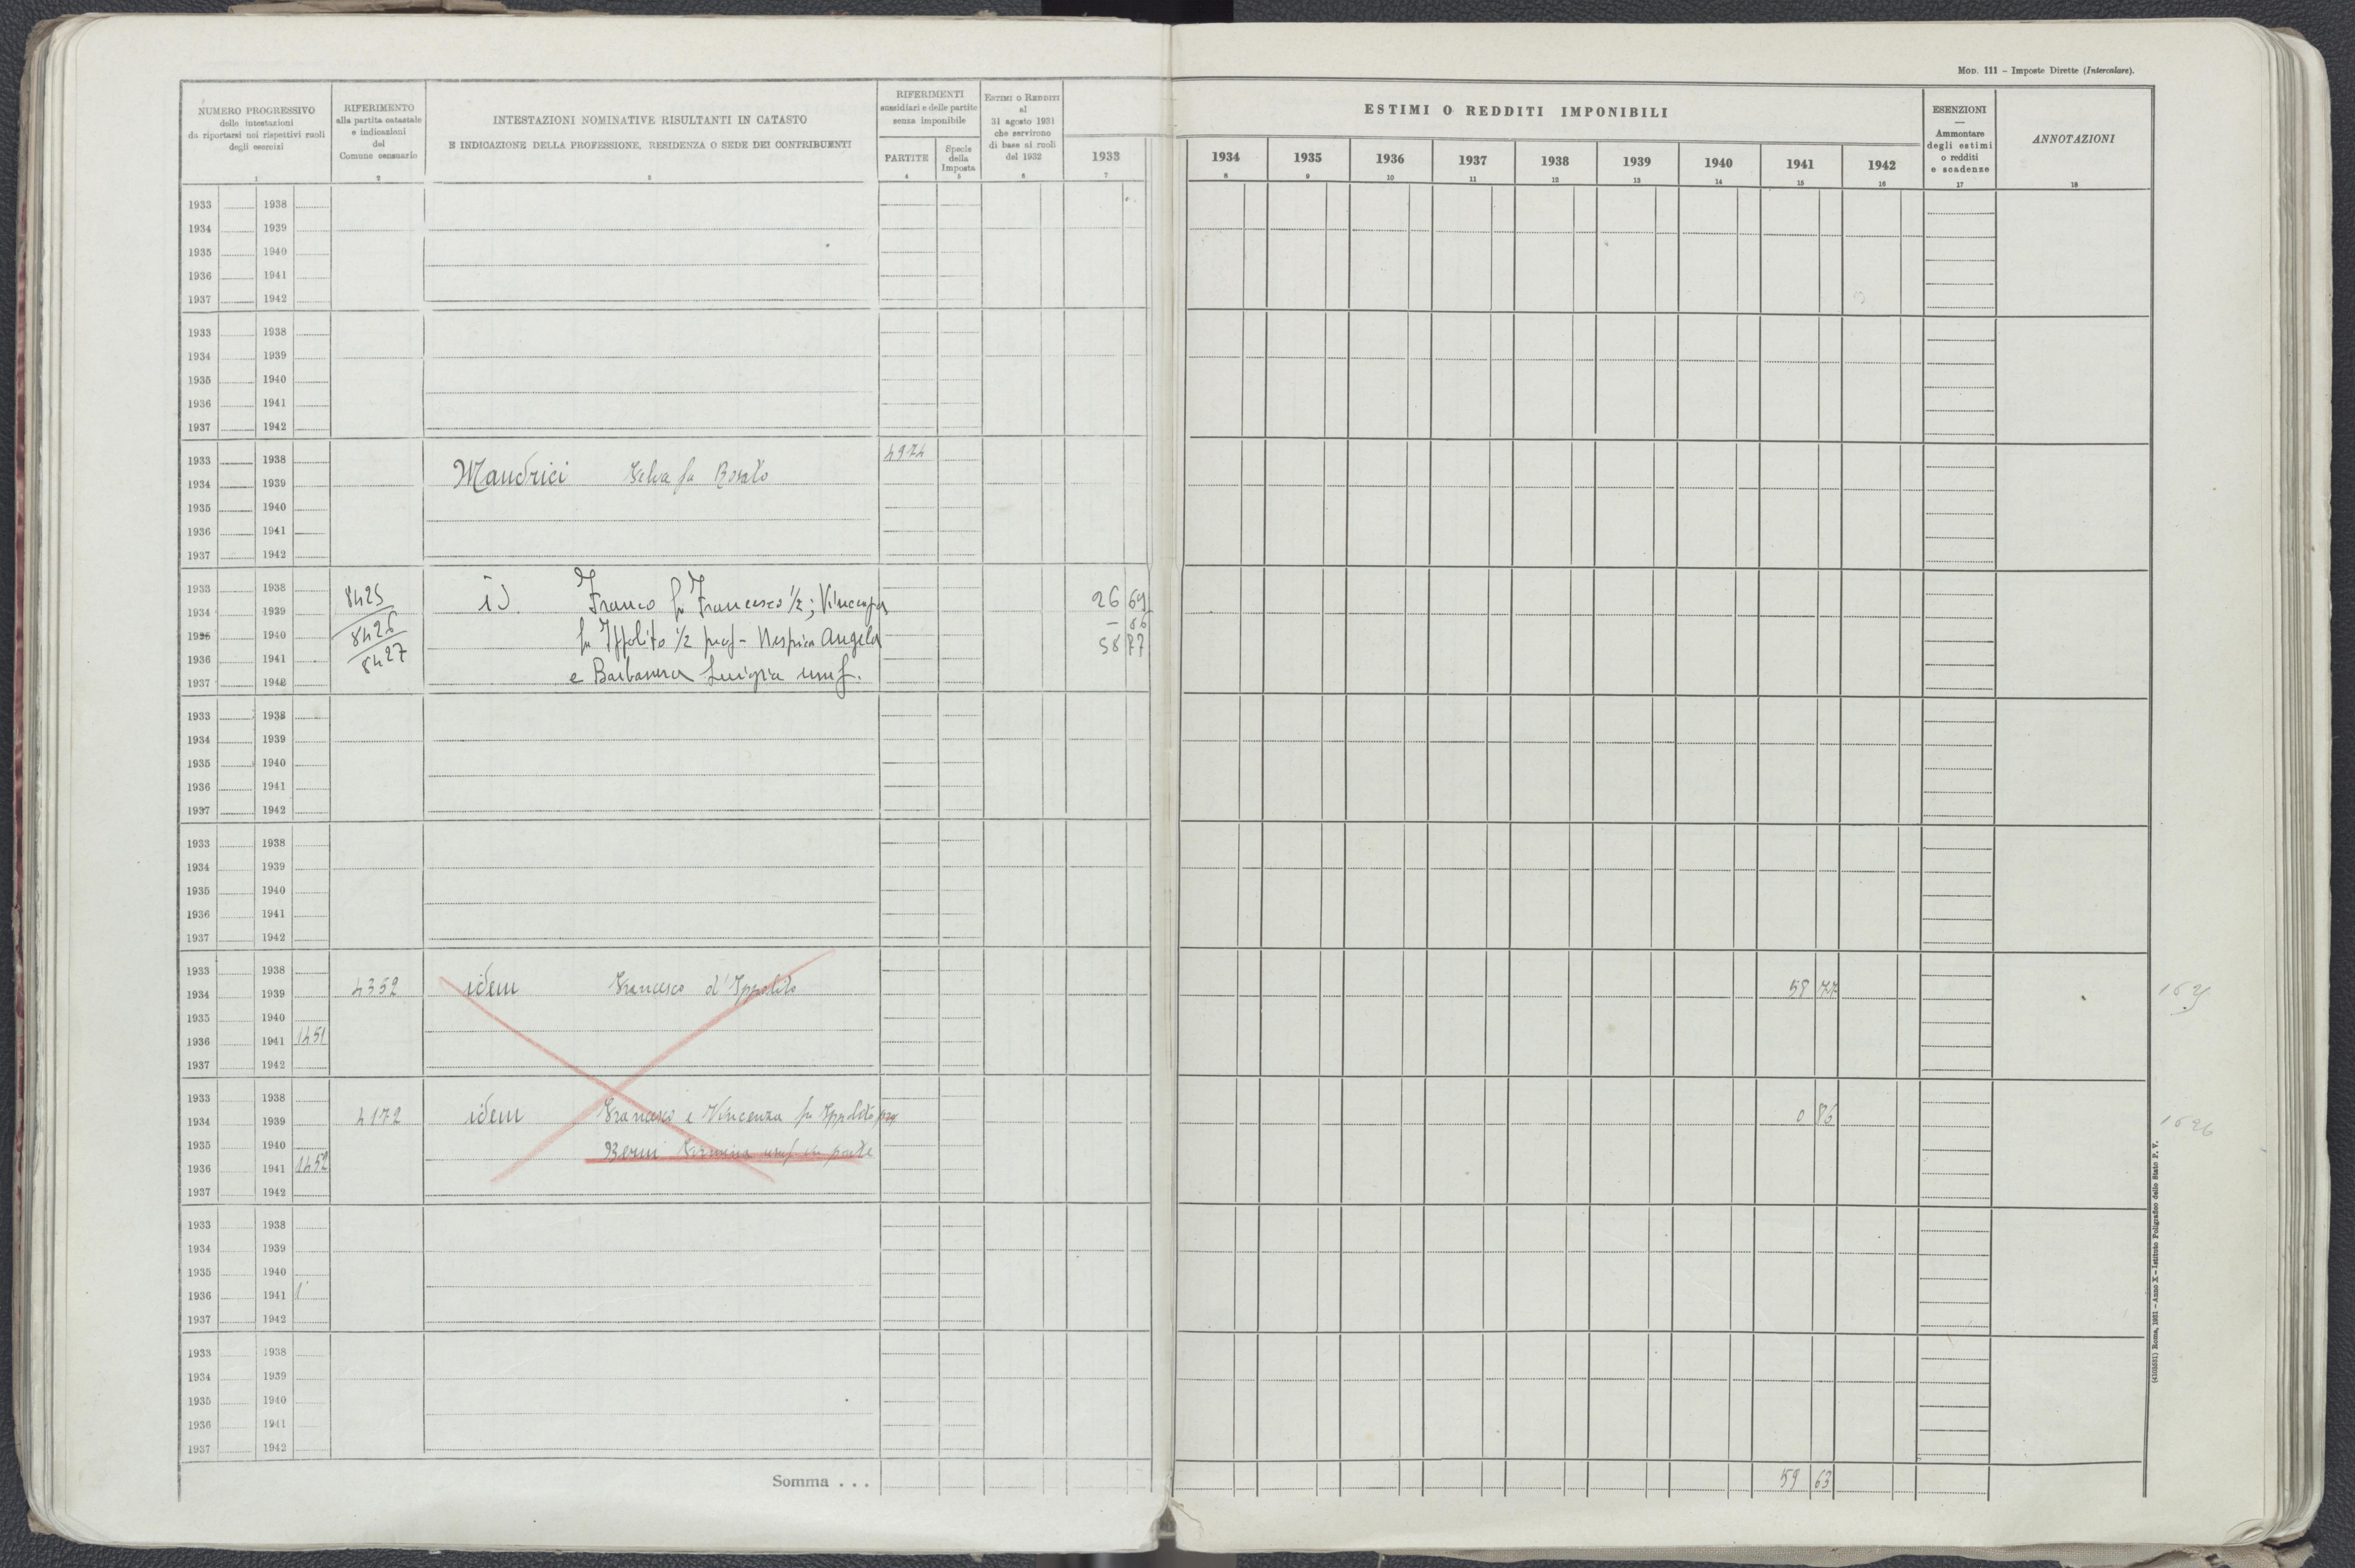 MOD. 111 – Imposte Dirette (Intercalare).
NUMERO PROGRESSIVO
delle intestazioni
da riportarsi nei rispettivi ruoli
degli esercizi
1
RIFERIMENTO
alla partita catastale
e indicazioni
del
Comune censuario
2
INTESTAZIONI NOMINATIVE RISULTANTI IN CATASTO
E INDICAZIONE DELLA PROFESSIONE, RESIDENZA O SEDE DEI CONTRIBUENTI
3
RIFERIMENTI
sussidiari e delle partite
senza imponibile
PARTITE
4
Specie
della
Imposta
5
ESTIMI O REDDITI
al
31 agosto 1931
che servirono
di base ai ruoli
del 1932
6
ESTIMI O REDDITI IMPONIBILI
1933 1934 1935 1936 1937 1938 1939 1940 1941 1942
7 8 9 10 11 12 13 14 15 16
ESENZIONI
—
Ammontare
degli estimi
o redditi
e scadenze
17
ANNOTAZIONI
18
1933 1938
1934 1939
1935 1940
1936 1941
1937 1942
1933 1938
1934 1939
1935 1940
1936 1941
1937 1942
1933 1938 4974
1934 1939 Mandrici Selva fu Rosato
1935 1940
1936 1941
1937 1942
1933 1938 8425 id. Franco fu Francesco 1/2; Vincenza 26 69
1934 1939 8426 fu Ippolito 1/2 prop - Nespica Angela – 86
1935 1940 8427 e Barbanera Luigia usuf. 58 77
1936 1941
1937 1942
1933 1938
1934 1939
1935 1940
1936 1941
1937 1942
1933 1938
1934 1939
1935 1940
1936 1941
1937 1942
1933 1938
1934 1939 4352 idem Francesco d'Ippolito 58 77
1935 1940
1936 1941 1451
1937 1942
1933 1938
1934 1939 4172 idem Francesco e Vincenza fu Ippolito prop 0 86 1526
1935 1940 Berni usuf in parte
1936 1941 1452
1937 1942
1933 1938
1934 1939
1935 1940
1936 1941 1
1937 1942
1933 1938
1934 1939
1935 1940
1936 1941
1937 1942
Somma . . . 59 63
(4103531) Roma, 1931 – Anno X – Istituto Poligrafico dello Stato P. V.